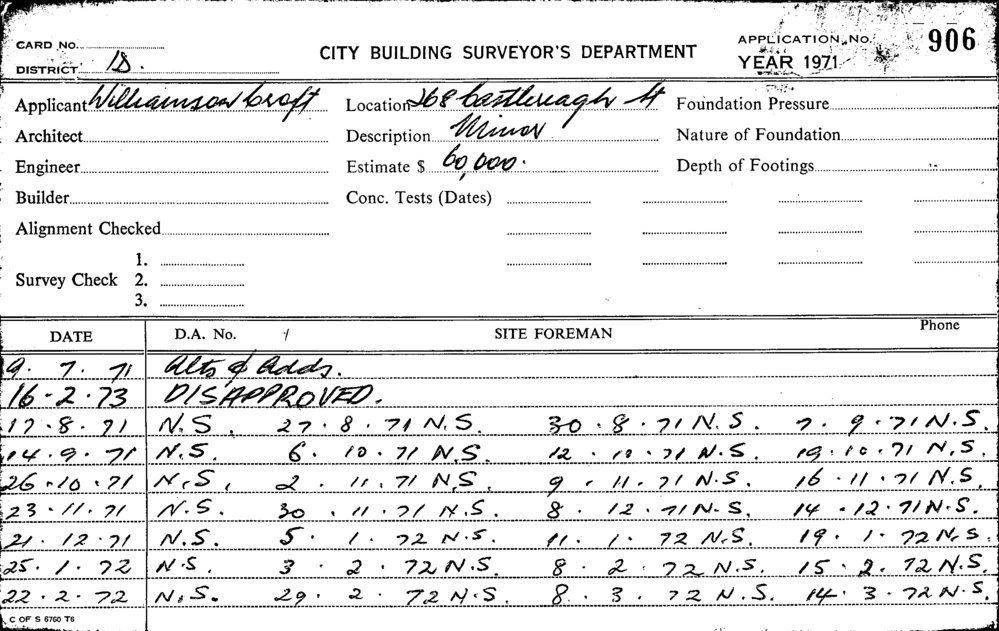 CARD NO. APPLICATION No. 906
CITY BUILDING SURVEYOR'S DEPARTMENT
DISTRICT D. YEAR 1971
Applicant Williamson Croft Location 268 Castlereagh St Foundation Pressure
Architect Description Minor Nature of Foundation
Engineer Estimate $ 60,000. Depth of Footings
Builder Conc. Tests (Dates)
Alignment Checked
1.
Survey Check 2.
3.
DATE D.A. No. SITE FOREMAN Phone
9. 7. 71 Alts & Adds.
16-2-73 DISAPPROVED.
17.8.71 N.S. 27.8.71 N.S. 30.8.71 N.S. 7.9.71 N.S.
14.9.71 N.S. 6.10.71 N.S. 12.10.71 N.S. 19.10.71 N.S.
26.10.71 N.S. 2.11.71 N.S. 9.11.71 N.S. 16.11.71 N.S.
23.11.71 N.S. 30.11.71 N.S. 8.12.71 N.S. 14.12.71 N.S.
21.12.71 N.S. 5.1.72 N.S. 11.1.72 N.S. 19.1.72 N.S.
25.1.72 N.S. 3.2.72 N.S. 8.2.72 N.S. 15.2.72 N.S.
22.2.72 N.S. 29.2.72 N.S. 8.3.72 N.S. 14.3.72 N.S.
C OF S 6760 T6